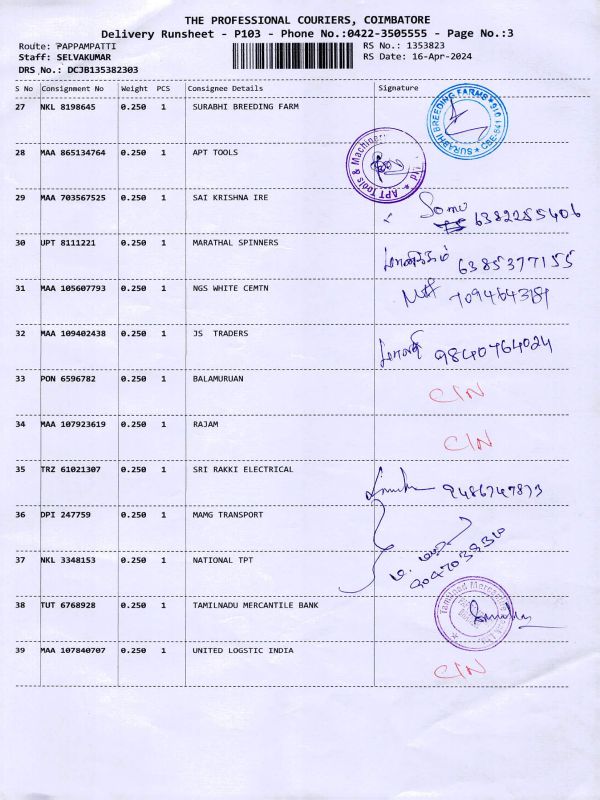 THE PROFESSIONAL COURIERS, COIMBATORE
Delivery Runsheet - P103 - Phone No.:0422-3505555 - Page No.:3
Route: PAPPAMPATTI RS No.: 1353823
Staff: SELVAKUMAR RS Date: 16-Apr-2024
DRS No.: DCJB135382303
S No Consignment No Weight PCS Consignee Details Signature
27 NKL 8198645 0.250 1 SURABHI BREEDING FARM
SURABHI BREEDING FARMS
28 MAA 865134764 0.250 1 APT TOOLS
APT Tools & Machinery
29 MAA 703567525 0.250 1 SAI KRISHNA IRE
6382285406
30 UPT 8111221 0.250 1 MARATHAL SPINNERS
6385377155
31 MAA 105607793 0.250 1 NGS WHITE CEMTN
32 MAA 109402438 0.250 1 JS TRADERS
9840764024
33 PON 6596782 0.250 1 BALAMURUAN C/N
34 MAA 107923619 0.250 1 RAJAM C/N
35 TRZ 61021307 0.250 1 SRI RAKKI ELECTRICAL
36 DPI 247759 0.250 1 MAMG TRANSPORT
37 NKL 3348153 0.250 1 NATIONAL TPT
38 TUT 6768928 0.250 1 TAMILNADU MERCANTILE BANK
Tamilnad Mercantile
39 MAA 107840707 0.250 1 UNITED LOGSTIC INDIA C/N